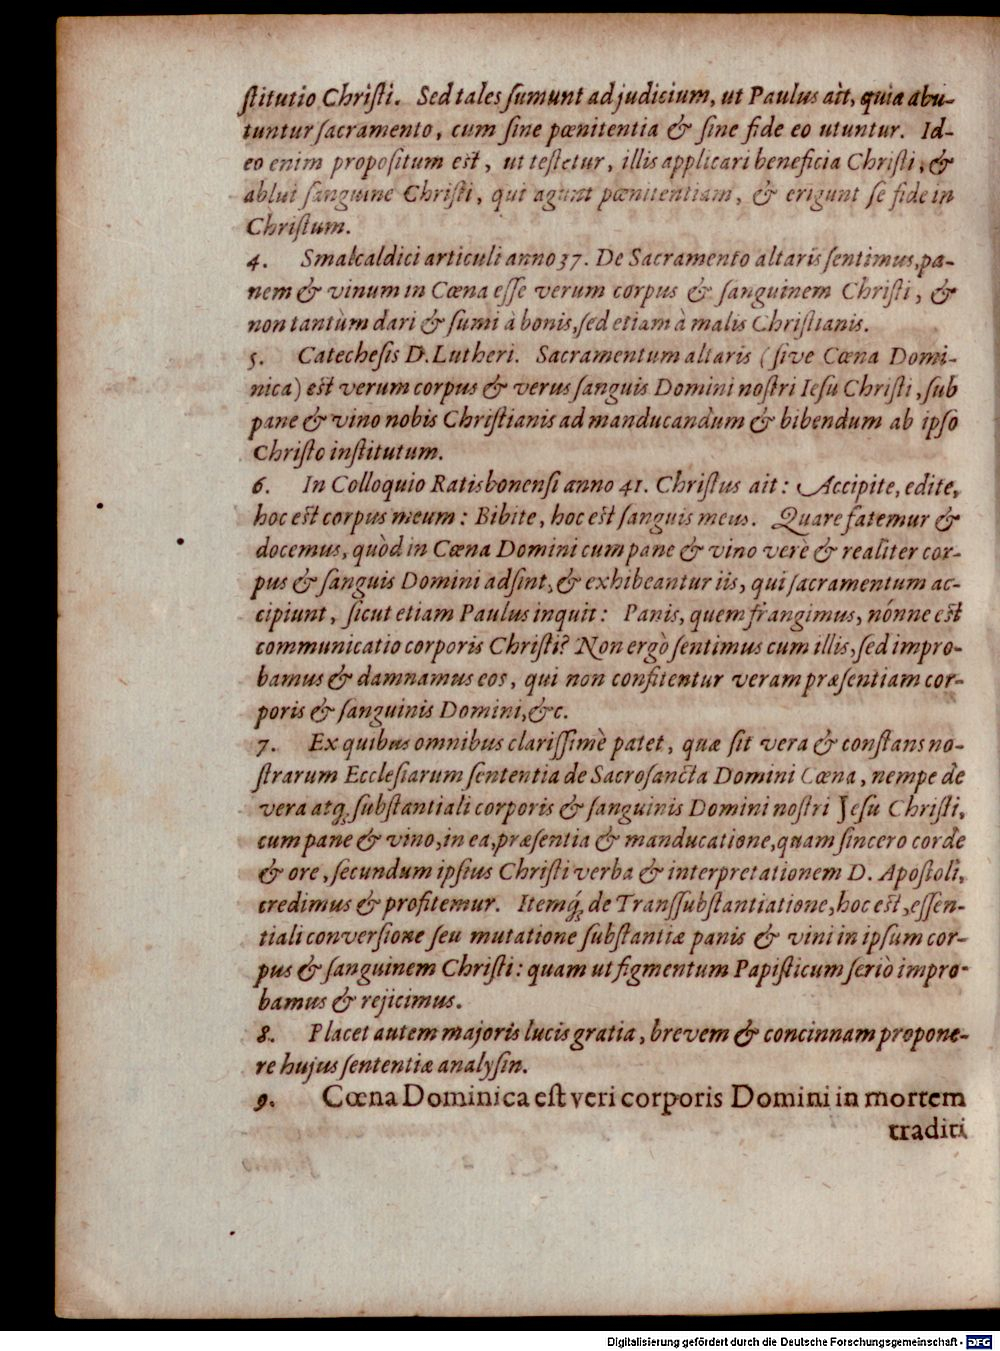 stitutio Christi. Sed tales sumunt ad judicium, ut Paulus ait, quia abu-
tuntur sacramento, cum sine pœnitentia & sine fide eo utuntur. Id-
eo enim propositum est, ut testetur, illis applicari beneficia Christi, &
ablui sanguine Christi, qui agunt pœnitentiam, & erigunt se fide in
Christum.
4. Smalcaldici articuli anno 37. De Sacramento altaris sentimus, pa-
nem & vinum in Cœna esse verum corpus & sanguinem Christi, &
non tantùm dari & sumi à bonis, sed etiam à malis Christianis.
5. Catechesis D. Lutheri. Sacramentum altaris (sive Cœna Domi-
nica) est verum corpus & verus sanguis Domini nostri Iesu Christi, sub
pane & vino nobis Christianis ad manducandum & bibendum ab ipso
Christo institutum.
6. In Colloquio Ratisbonensi anno 41. Christus ait: Accipite, edite,
hoc est corpus meum: Bibite, hoc est sanguis meus. Quare fatemur &
docemus, quòd in Cœna Domini cum pane & vino verè & realiter cor-
pus & sanguis Domini adsint, & exhibeantur iis, qui sacramentum ac-
cipiunt, sicut etiam Paulus inquit: Panis, quem frangimus, nónne est
communicatio corporis Christi? Non ergò sentimus cum illis, sed impro-
bamus & damnamus eos, qui non confitentur veram præsentiam cor-
poris & sanguinis Domini, &c.
7. Ex quibus omnibus clarissimè patet, quæ sit vera & constans no-
strarum Ecclesiarum sententia de Sacrosancta Domini Cœna, nempe de
vera atq; substantiali corporis & sanguinis Domini nostri Jesu Christi,
cum pane & vino, in ea, præsentia & manducatione, quam sincero corde
& ore, secundum ipsius Christi verba & interpretationem D. Apostoli,
credimus & profitemur. Itemq́; de Transsubstantiatione, hoc est, essen-
tiali conversione seu mutatione substantiæ panis & vini in ipsum cor-
pus & sanguinem Christi: quam ut figmentum Papisticum seriò impro-
bamus & rejicimus.
8. Placet autem majoris lucis gratia, brevem & concinnam propone-
re hujus sententiæ analysin.
9. Cœna Dominica est veri corporis Domini in mortem
traditi
Digitalisierung gefördert durch die Deutsche Forschungsgemeinschaft - DFG